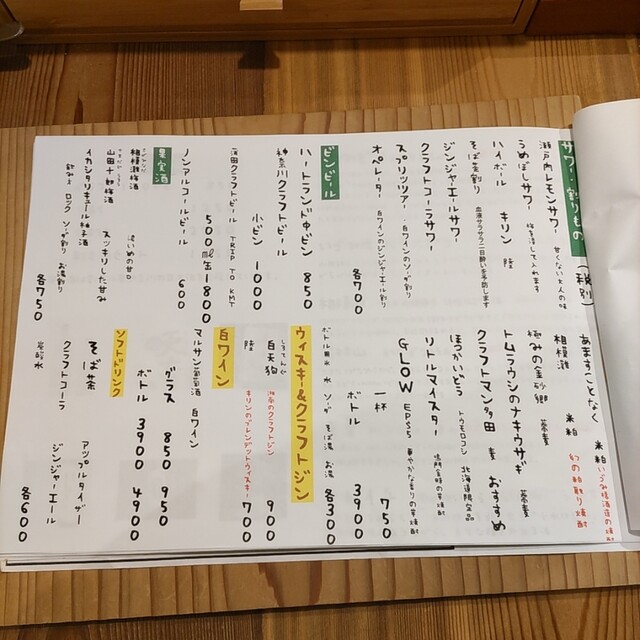 サワー・割りもの（税別）
瀬戸内レモンサワー 甘くない大人の味
うめぼしサワー 梅を潰して入れます
ハイボール キリン 陸
そば茶割り 血液サラサラ二日酔いを予防します
ジンジャエールサワー
クラフトコーラサワー
スプリッツァー 白ワインのソーダ割り
オペレーター 白ワインのジンジャエール割り
各700
ビンビール
ハートランド中ビン 850
神奈川クラフトビール
小ビン 1000
蒲田クラフトビール TRIP TO KMT
500ml缶 1800
ノンアルコールビール 600
果実酒
相模灘梅酒 濃いめの甘口
山田十郎梅酒 スッキリした甘み
イカシタリキュール柚子酒
飲み方 ロック ソーダ割り お湯割り
各750
あますことなく 米粕 いづみ橋酒造の焼酎
相模灘 米粕 幻の粕取り焼酎
極みの金砂郷 蕎麦
トムラウシのナキウサギ 蕎麦
クラフトマン多田 麦 おすすめ
ほっかいどう トウモロコシ 北海道限定品
リトルマイスター 鳴門金時の芋焼酎
GLOW EP55 華やかな香りの芋焼酎
一杯 750
ボトル 3900
ボトル用 氷 水 ソーダ そば湯 お湯 各300
ウィスキー&クラフトジン
白天狗 湘南のクラフトジン 900
陸 キリンのブレンデットウイスキー 700
白ワイン
マルサン葡萄酒 白ワイン
グラス 850 950
ボトル 3900 4900
ソフトドリンク
そば茶 アップルタイザー
クラフトコーラ ジンジャーエール
炭酸水 各600